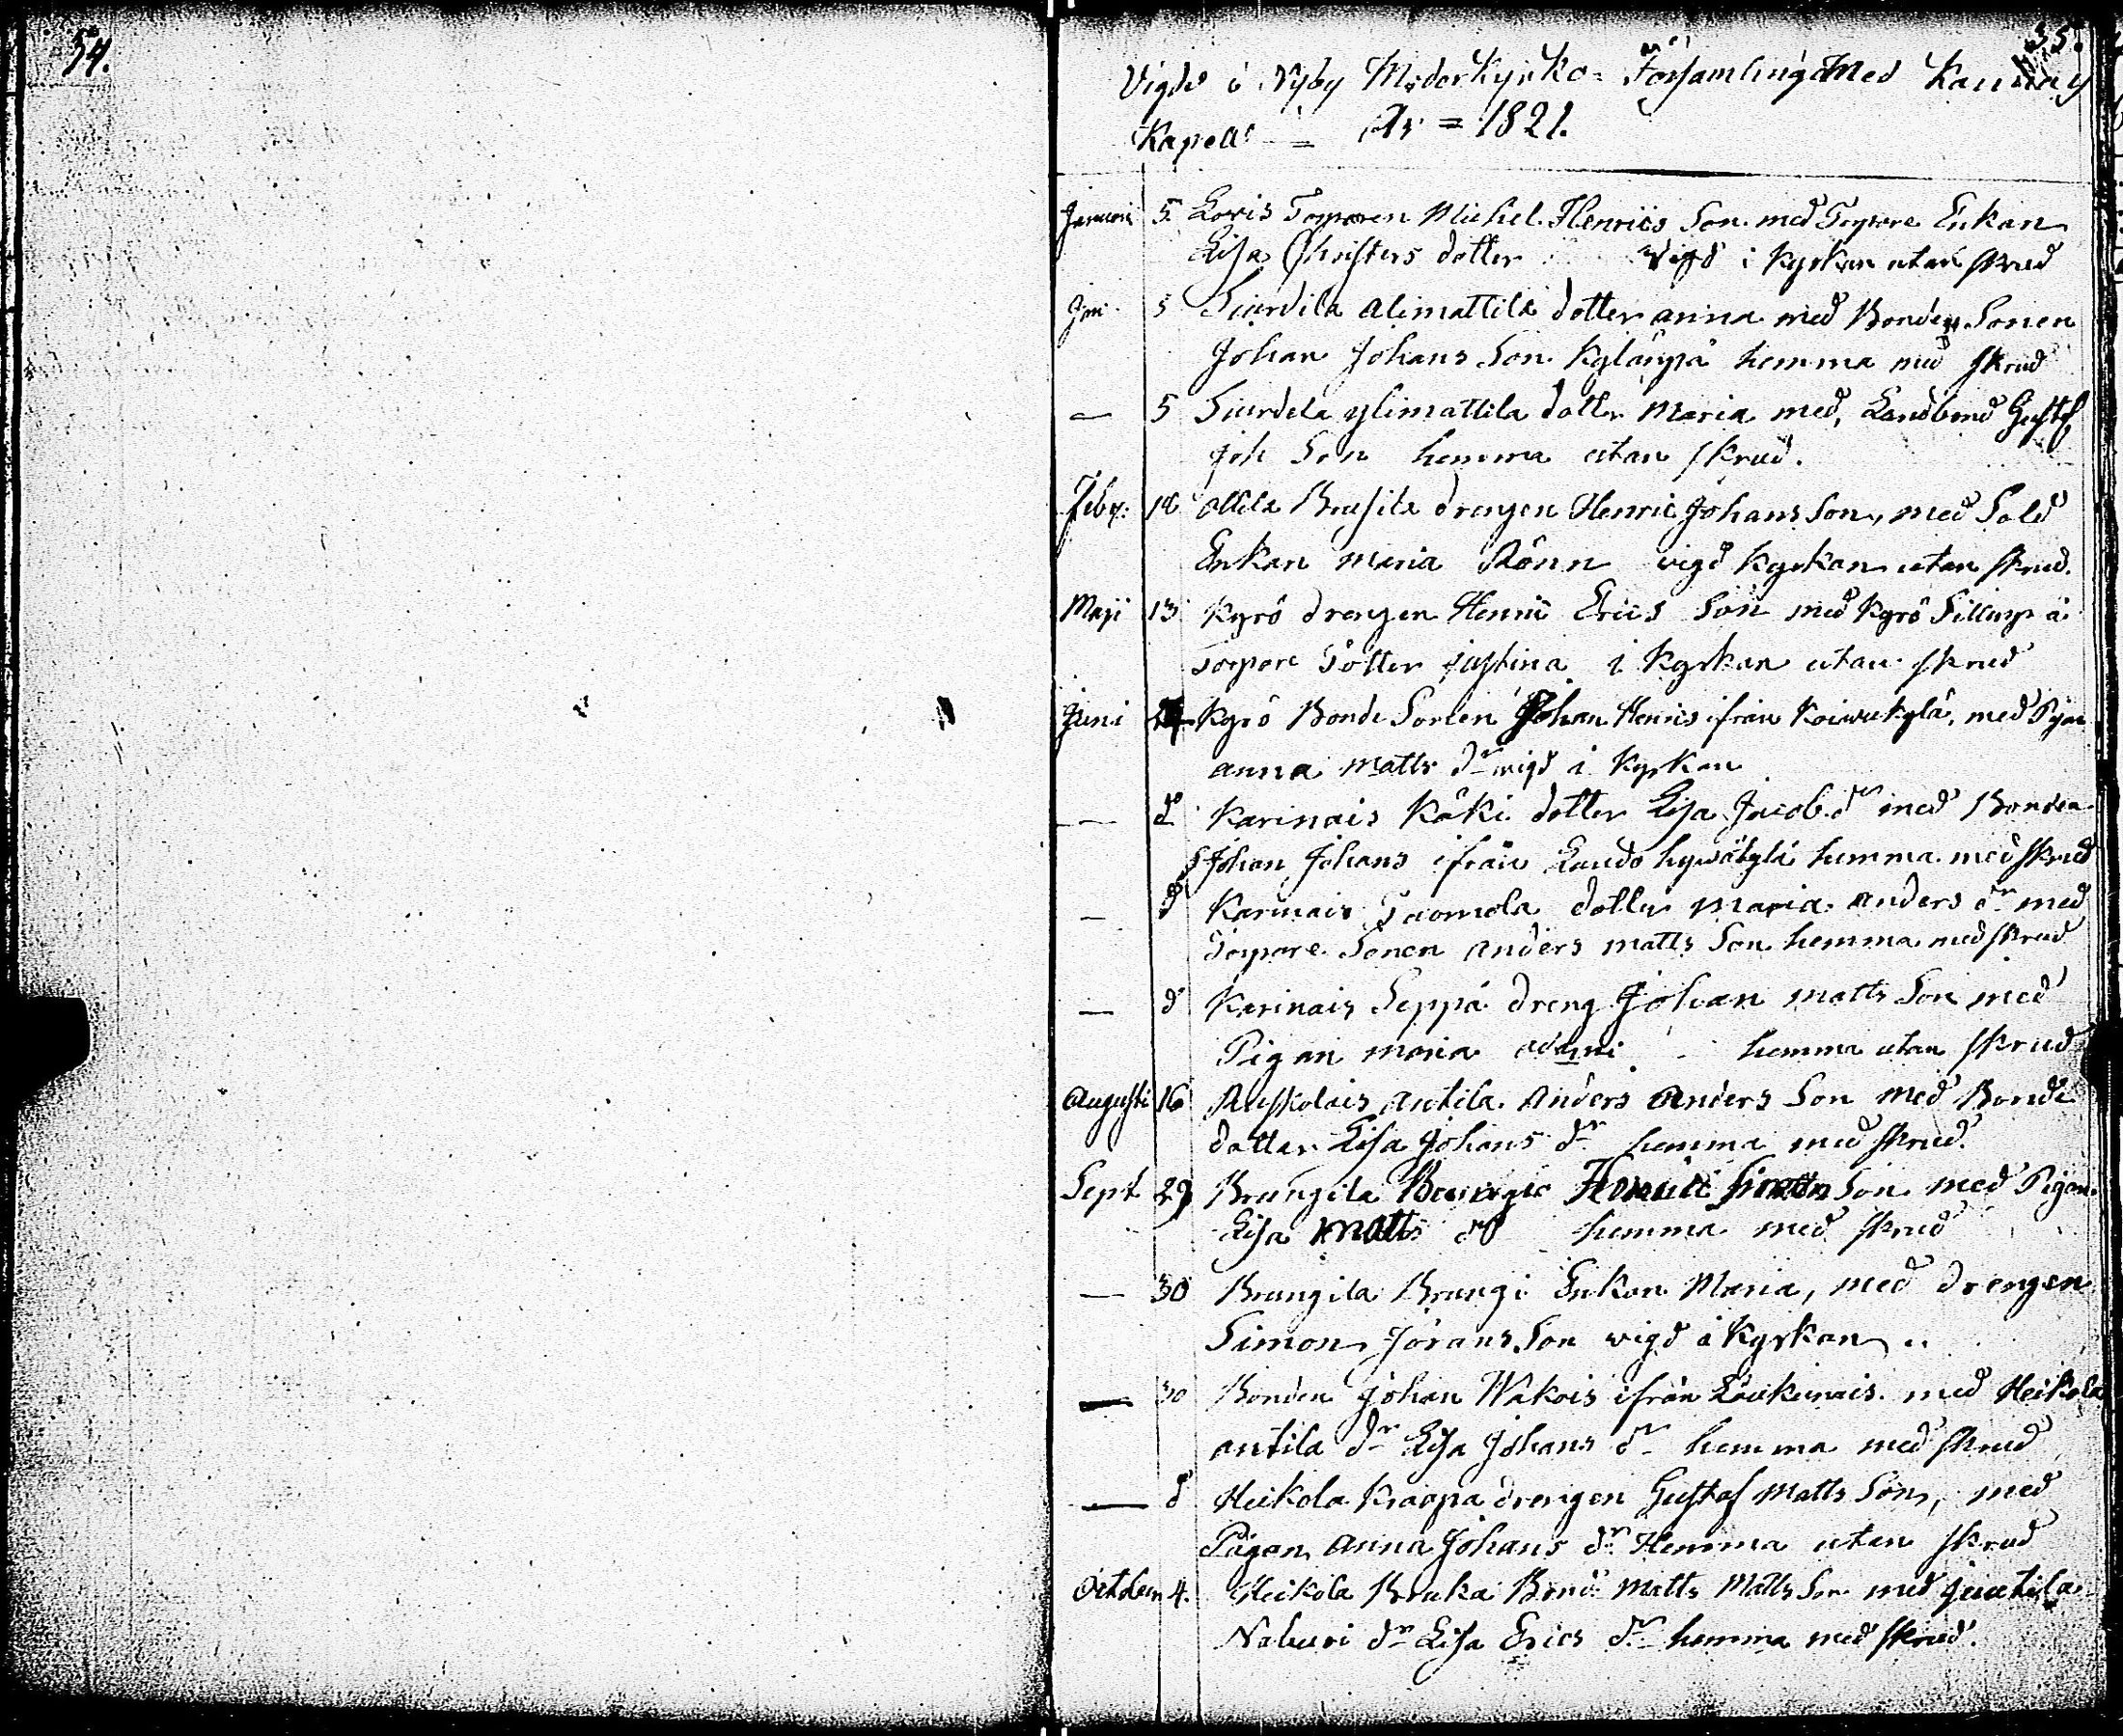 54.
35.
Vigde i Nyby Moderkyrko= Församling Med Karinay
Kapell = År = 1821.
Januari 5. Loris Torparen Michel Henrics Son med Torpare Enkan
Lisa Christers dotter vigd i Kyrkan utan skrud
Jan 5 Siurdila alimattila dotter anna med Bonde Sonen
Johan Johans Son Kylänpä hemma med skrud
— 5 Siurdela ylimattila dotter Maria med, Landbond Gustf
Joh Son hemma utan skrud.
Feby: 18 Ollila Brusila drengen Henric Johans Son, med Sold
Enkan Maria Rönn vigd Kyrkan utan skrud.
Maji 13 Kyrö drengen Henric Erics Son med Kyrö Sillanp ä
torpare dotter justina i Kyrkan utan skrud
Juni 24 Kyrö Bonde Sonen Johan Henrics ifrån Koiwukylä, med Pigan
anna Matts dr wigd i Kyrkan
— d Karinais Käki dotter Lisa Jacob dr med Bonden
Johan Johans ifrån Laudo hywäkylä hemma med skrud
— d Karinais Tuomola dotter Maria Anders dr med
Torpare Sonen Anders Matts Son hemma med skrud
— d Karinais Seppä dreng Johan Matts Son med
Pigan Maria Adami hemma utan skrud
Augusti 16 Ruskolais Antila Anders Anders Son med Bonde
dotter Lisa Johans dr hemma med skrud.
Sept 29 Brungila Henric Simon Son med Pigan
Lisa Matts dr hemma med skrud
— 30 Brungila Brungi Enkan Maria, med drengen
Simon Jörans Son wigd i Kyrkan ..
— 30 Bonden Johan Wäkois ifrån Laukunais med Heikola
antila dr Lisa Johans dr hemma med skrud
— d Heikola Kraapa drengen Gustaf Matts Son, med
Pigan Anna Johans dr Hemma utan skrud
October 4. Heikola Kruka Bond Matts Matts Son med Juutila
Naburi dr Lisa Erics dr hemma med skrud.